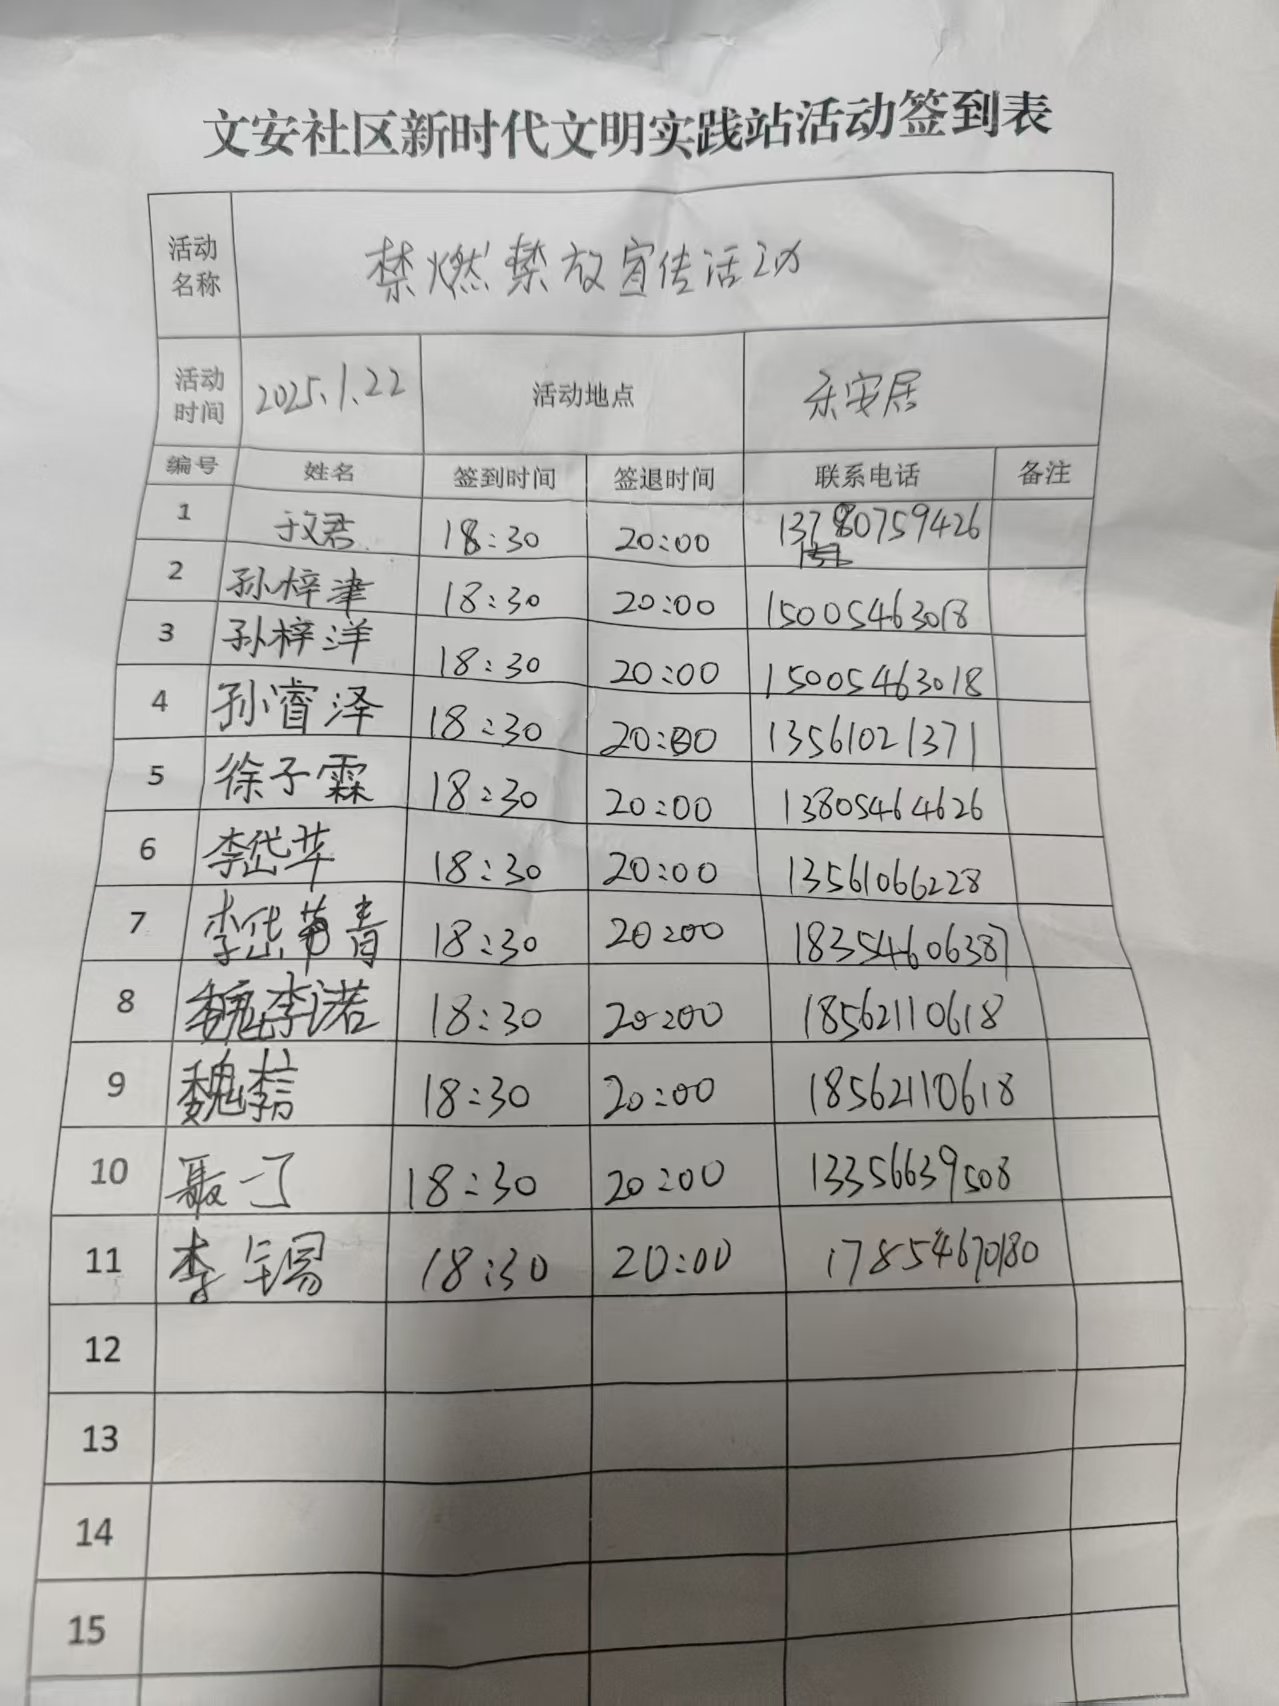 文安社区新时代文明实践站活动签到表
活动名称 禁燃禁放宣传活动
活动时间 2025.1.22 活动地点 永安居
编号 姓名 签到时间 签退时间 联系电话 备注
1 于文君 18:30 20:00 13780759426
2 孙梓津 18:30 20:00 15005463018
3 孙梓洋 18:30 20:00 15005463018
4 孙睿泽 18:30 20:00 13561021371
5 徐子霖 18:30 20:00 13805464626
6 李岱华 18:30 20:00 13561066228
7 李岱青 18:30 20:00 18354606387
8 魏李诺 18:30 20:00 18562110618
9 魏李言 18:30 20:00 18562110618
10 聂一了 18:30 20:00 13356639508
11 李 18:30 20:00 17854670180
12
13
14
15